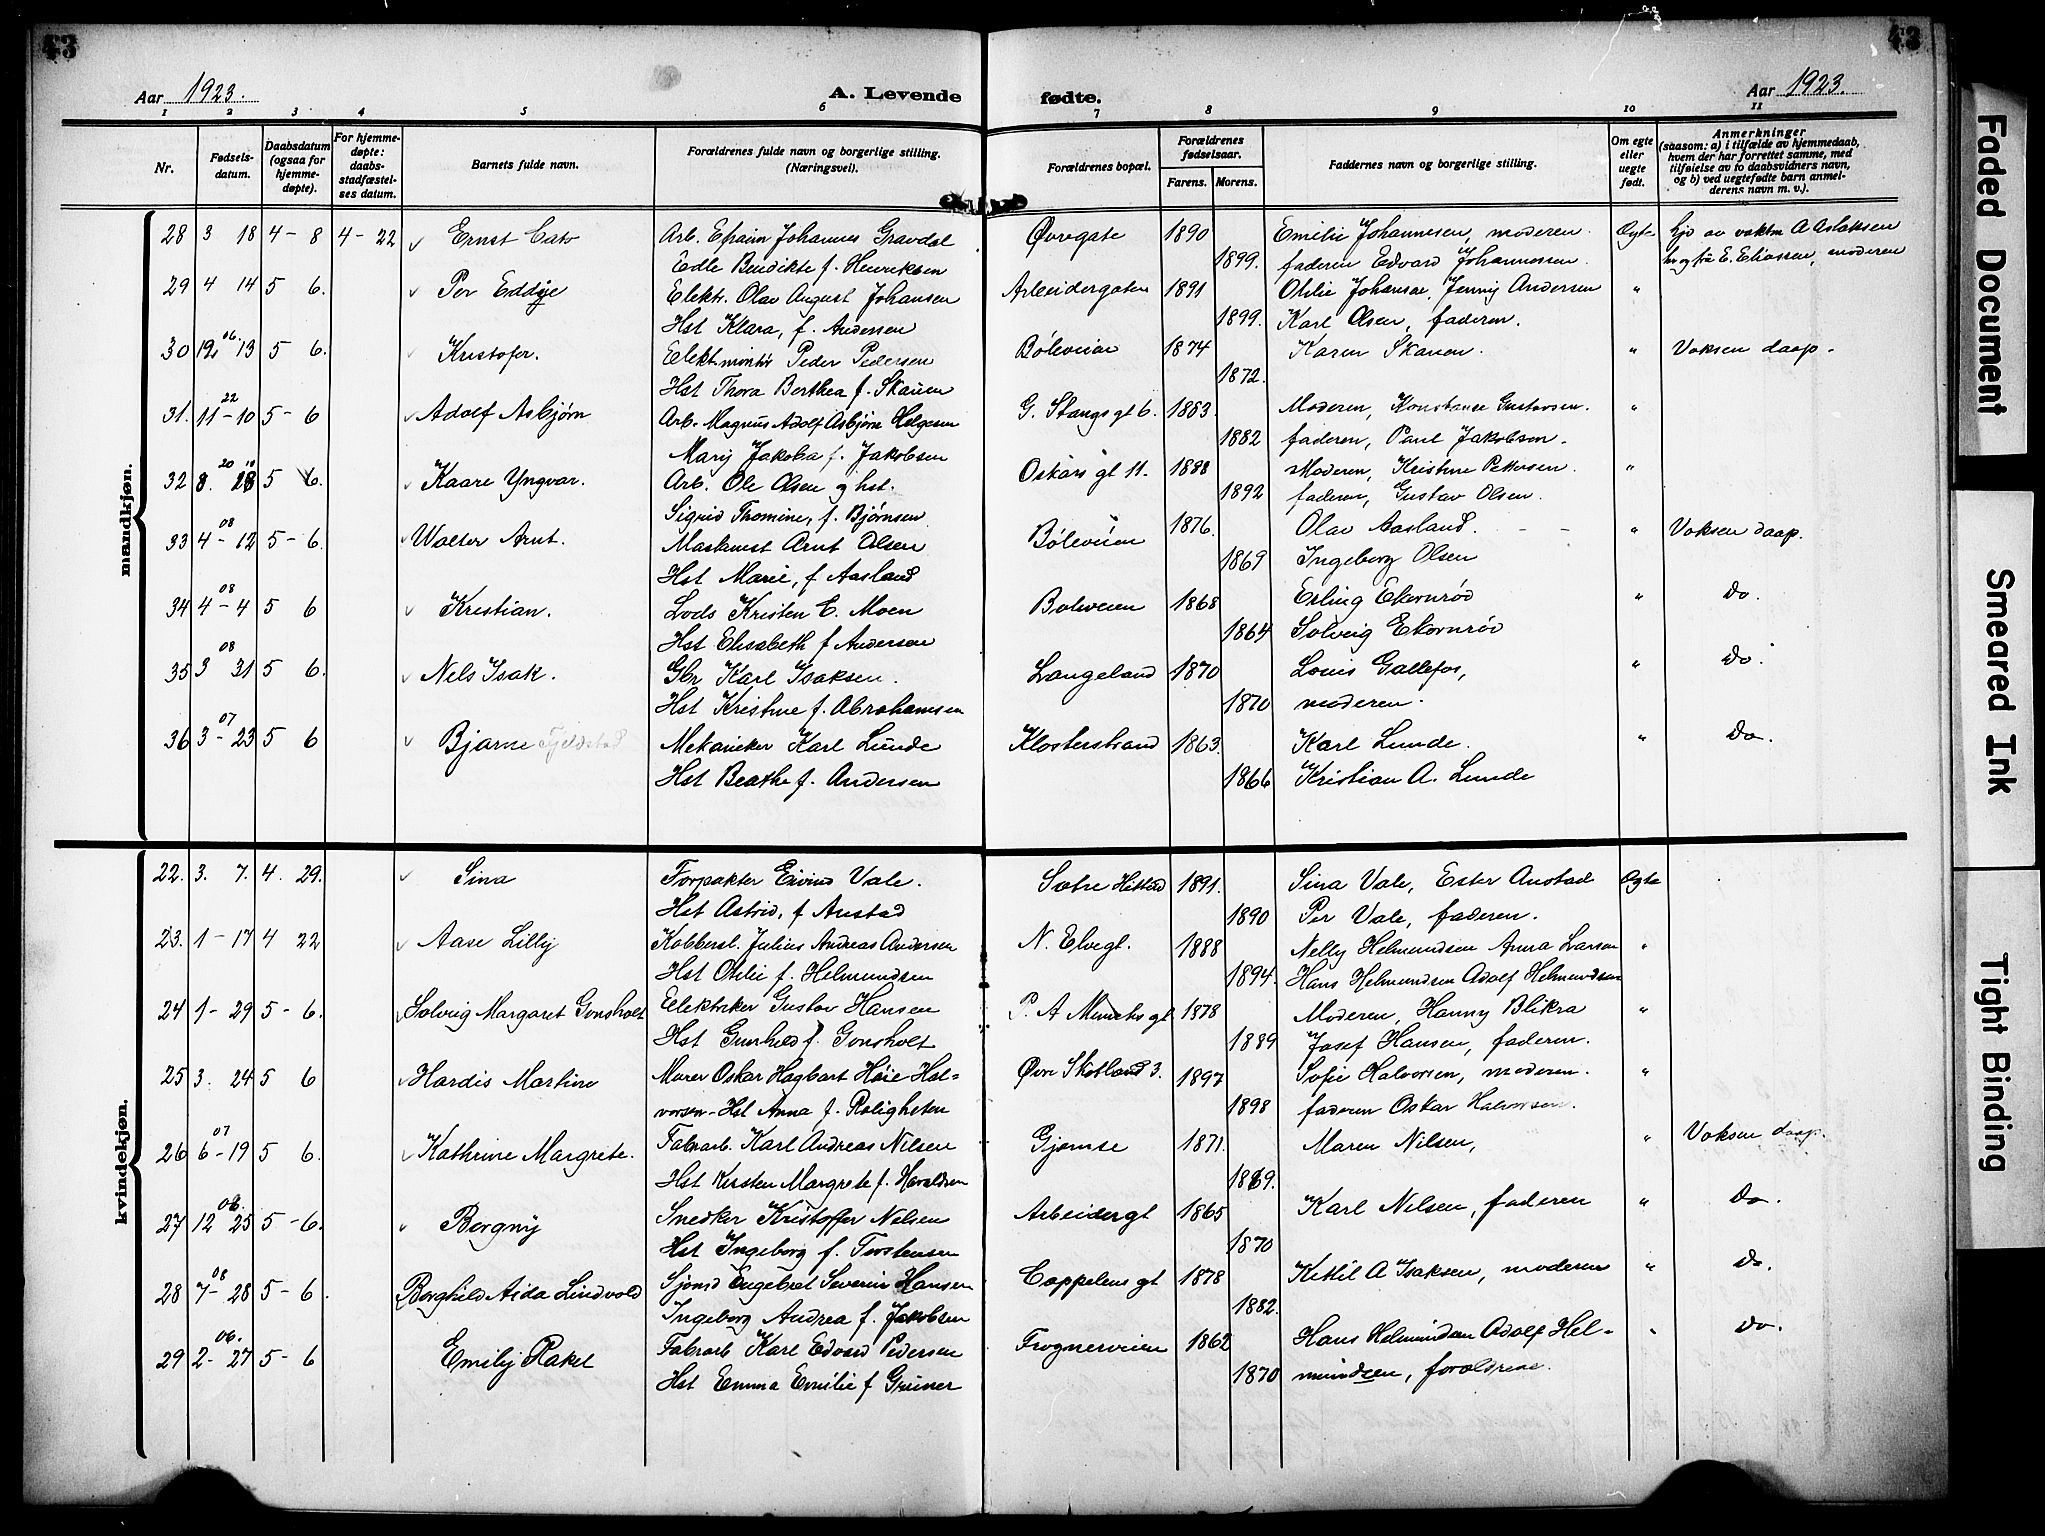 43
43
Aar 1923.
A. Levende
fødte.
Aar 1923.
1 2 3 4 5 6 7 8 9 10 11
Nr.
Fødsels-
datum.
Daabsdatum
(ogsaa for
hjemme-
døpte).
For hjemme-
døpte:
daabs-
stadfæstel-
ses datum.
Barnets fulde navn.
Forældrenes fulde navn og borgerlige stilling.
(Næringsvei).
Forældrenes bopæl.
Forældrenes
fødselsaar.
Farens. Morens.
Faddernes navn og borgerlige stilling.
Om egte
eller
uegte
født.
Anmerkninger
(saasom: a) i tilfælde av hjemmedaab,
hvem der har forrettet samme, med
tilføielse av to daabsvidners navn,
og b) ved uegtefødte barn anmel-
derens navn m. v.).
mandkjøn.
28 3 18 4-8 4-22 Ernst Cato Arb. Efraim Johannes Gravdal Øvregate 1890 Emilie Johannesen, moderen. Egte hjd av vaktm A Aslaksen
Edle Bendikte f. Henriksen 1899. faderen Edvard Johannessen. E. Eliassen, moderen
29 4 14 5 6. Per Eddye Elektr. Olav August Johansen Arbeidergaten 1891 Othilie Johansen, Jenny Andersen "
Hst Klara, f. Andersen 1899. Karl Olsen, faderen.
30 12 06 13 5 6. Kristofer. Elekt. montør Peder Pedersen Bøleveien 1874 Karen Skauen. " Voksen daap.
Hst Thora Berthea f. Skauen 1872.
31. 11-10 22 5-6 Adolf Asbjørn Arb. Magnus Adolf Asbjørn Helgesen G. Stangs gt 6. 1883 Moderen, Konstanse Gustavsen. "
Mary Jakoba f. Jakobsen 1882 faderen, Paul Jakobsen.
32 8. 20 28 5 6. Kaare Yngvar. Arb. Ole Olsen og hst. Oskars gt 11. 1888 Moderen, Kristine Pettersen. "
Sigrid Thomine, f. Bjørnsen 1892 faderen, Gustav Olsen.
33 4-12 08 5-6. Walter Arnt. Maskinist Arnt Olsen Bøleveien 1876. Olav Aasland. " Voksen daap.
Hst Marie, f Aasland 1869 Ingeborg Olsen
34 4-4 08 5 6 Kristian. Lods Kristen C. Moen Boleveien 1868 Erling Ekornrød " Do.
Hst Elisabeth f Andersen 1864 Solveig Ekornrød
35 3 08 31 5 6. Nels Isak. Gbr Karl Isaksen. Langeland 1870 Louis Gallefos, " Do.
Hst Kristine f. Abrahamsen 1870 moderen.
36 3-23 07 5 6 Bjarne Fjeldstad Mekaniker Karl Lunde Klosterstrand 1863. Karl Lunde. " Do.
Hst Beathe f. Andersen 1866 Kristian A. Lunde
kvindekjøn.
22. 3. 7. 4. 29. Sina Forpakter Eivind Vale. Sætre Hitterd 1891. Sina Vale, Ester Anstad Egte
Hst Astrid, f Anstad 1890 Per Vale, faderen.
23. 1-17 4 22 Aase Lilly Kobbersl. Julius Andreas Andersen N. Elvegt. 1888 Nelly Helmundsen Anna Larsen "
Hst Othlie f. Helmundsen 1894. Hans Helmundsen Adolf Helmundsen
24 1-29 5-6. Solveig Margaret Gonsholt Elektriker Gustav Hansen P. A Munchs gt 1878 Moderen, Hanny Blikra "
Hst Gunhild f. Gonsholt 1889 Josef Hansen, faderen.
25 3. 24 5 6 Hardis Martine Murer Oskar Hagbart Høie Hal- Øvre Skotland 3. 1897 Sofie Halvorsen, moderen. "
vorsen - Hst Anna f. Roligheten 1898 faderen Oskar Halvorsen.
26 6-19 07 5 6. Kathrine Margrete. Fabrarb. Karl Andreas Nilsen Gjemse 1871. Maren Nilsen, " Voksen daap.
Hst Kirsten Margrete f. Haraldsen 1869.
27 12 06. 25 5-6. Borgny Snedker Kristoffer Nelsen Arbeidergt 1865 Karl Nilsen, faderen " Do.
Hst Ingeborg f. Torstensen 1870
28 7-28 08 5-6. Borghild Aida Lindvold Sjømd Engebret Severin Hansen Cappelens gt 1878 Kittil A Isaksen, moderen " Do.
Ingeborg Andrea f. Jakobsen 1882.
29 2-27 06. 5-6 Emily Rakel Fabrarb Karl Edvard Pedersen Frognerveien 1862 Hans Helmundsen Adolf Hel- " Do.
Hst Emma Emilie f Greiner 1870 mundsen, forældrene.
Faded Document
Smeared Ink
Tight Binding